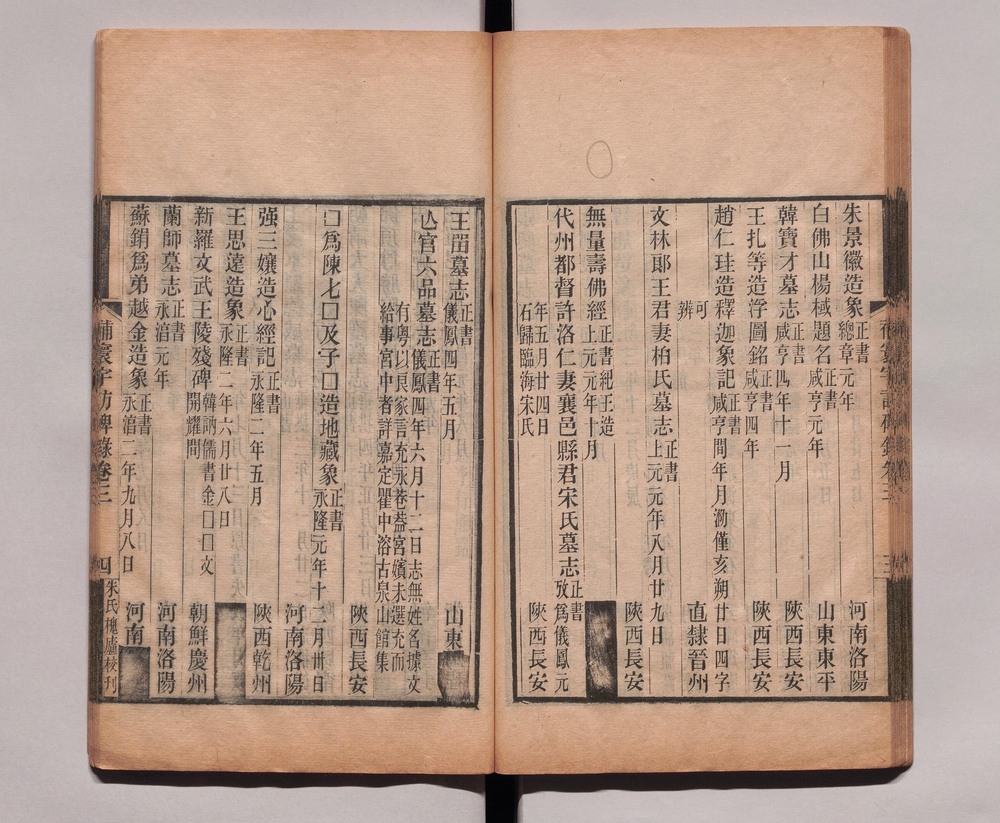 朱景徽造象 正書 總章元年 河南洛陽
白佛山楊棫題名 正書 咸亨元年 山東東平
韓寶才墓志 正書 咸亨四年十一月 陝西長安
王扎等造浮圖銘 正書 咸亨四年 陝西長安
趙仁珪造釋迦象記 正書 咸亨間年月泐僅亥朔廿日四字
可辨 直隸晉州
文林郎王君妻柏氏墓志 正書 上元元年八月廿九日 陝西長安
無量壽佛經 正書紀王造 上元元年十月
代州都督許洛仁妻襄邑縣君宋氏墓志 正書 攷爲儀鳳元
年五月廿四日 石歸臨海宋氏 陝西長安
補寰宇訪碑錄卷三 三
王留墓志 正書 儀鳳四年五月 山東
亾宫六品墓志 正書 儀鳳四年六月十二日志無姓名據文
有粤以良家言充永巷葢宮嬪未選充而
給事宮中者詳嘉定瞿中溶古泉山館集 陝西長安
□爲陳七□及子□造地藏象 正書 永隆元年十二月卅日 河南洛陽
强三孃造心經記 正書 永隆二年五月 陝西乾州
王思達造象 正書 永隆二年六月廿八日
新羅文武王陵殘碑 韓訥儒書金□□文 開耀間 朝鮮慶州
蘭師墓志 正書 永湻元年 河南洛陽
蘇鋗爲弟越金造象 正書 永湻二年九月八日 河南
補寰宇訪碑錄卷三 四 朱氏槐廬校刊